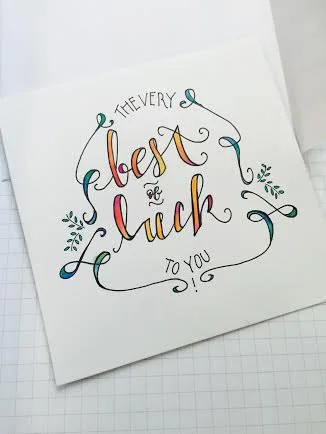 THE VERY
best
of
luck
TO YOU
!